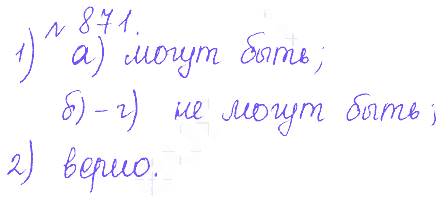 № 871.
1) а) могут быть;
б) – г) не могут быть;
2) верно.